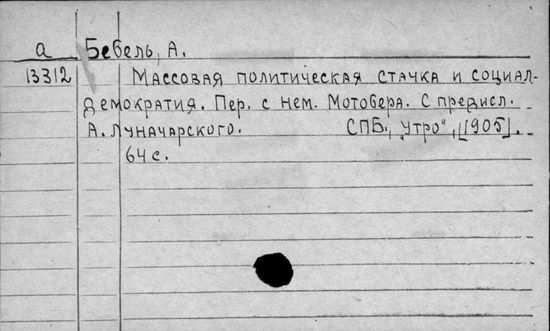 а Бебель, А.
13312 Массовая политическая стачка и социал-
демократия. Пер. с нем. Мотобера. С предисл.
А. Луначарского. СПБ., „Утро", [1905].
64 с.